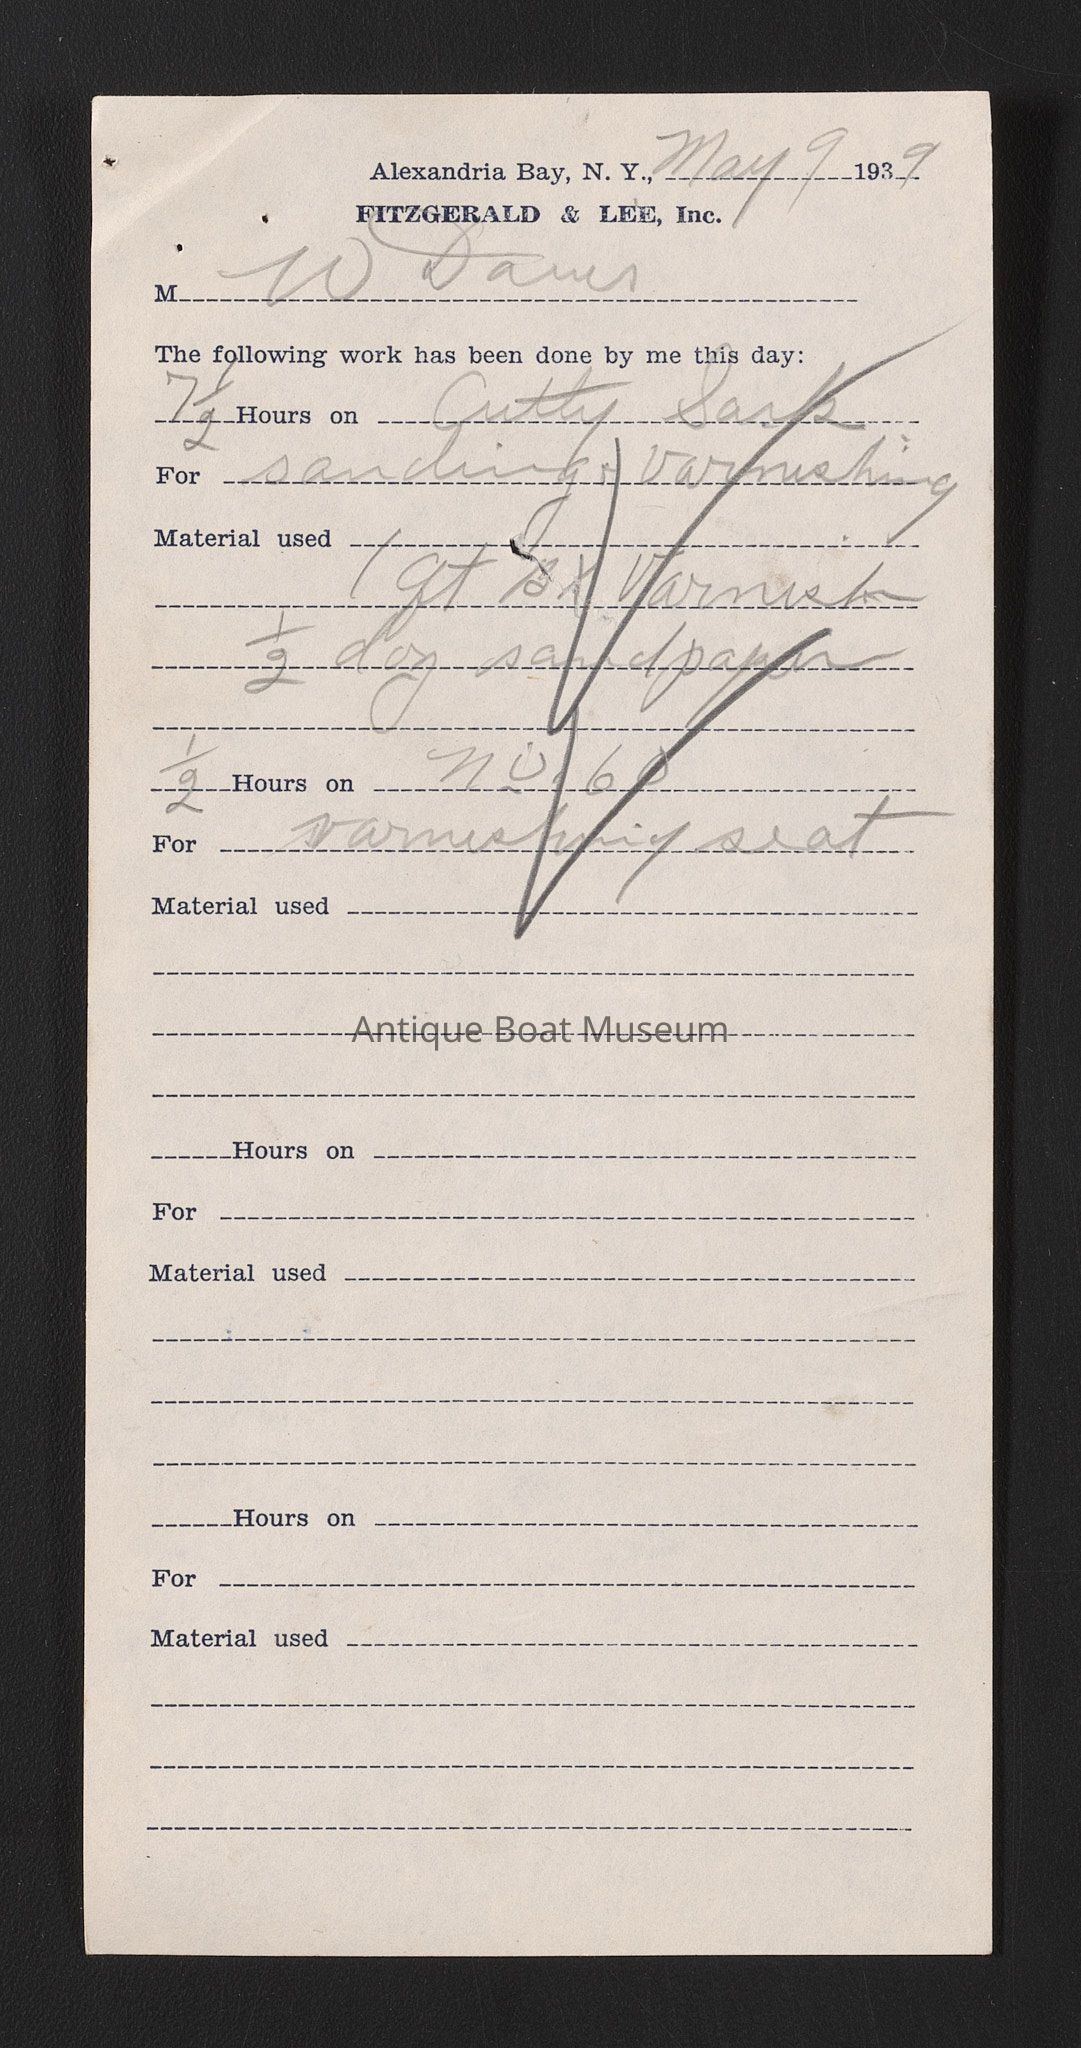 Alexandria Bay, N. Y., May 9 1939
FITZGERALD & LEE, Inc.
M W Davis
The following work has been done by me this day:
7 1/2 Hours on Cutty Sark
For sanding & varnishing
Material used
1 qt Varnish
1/2 doz sandpaper
1/2 Hours on No. 60
For varnishing seat
Material used
Antique Boat Museum
Hours on
For
Material used
Hours on
For
Material used